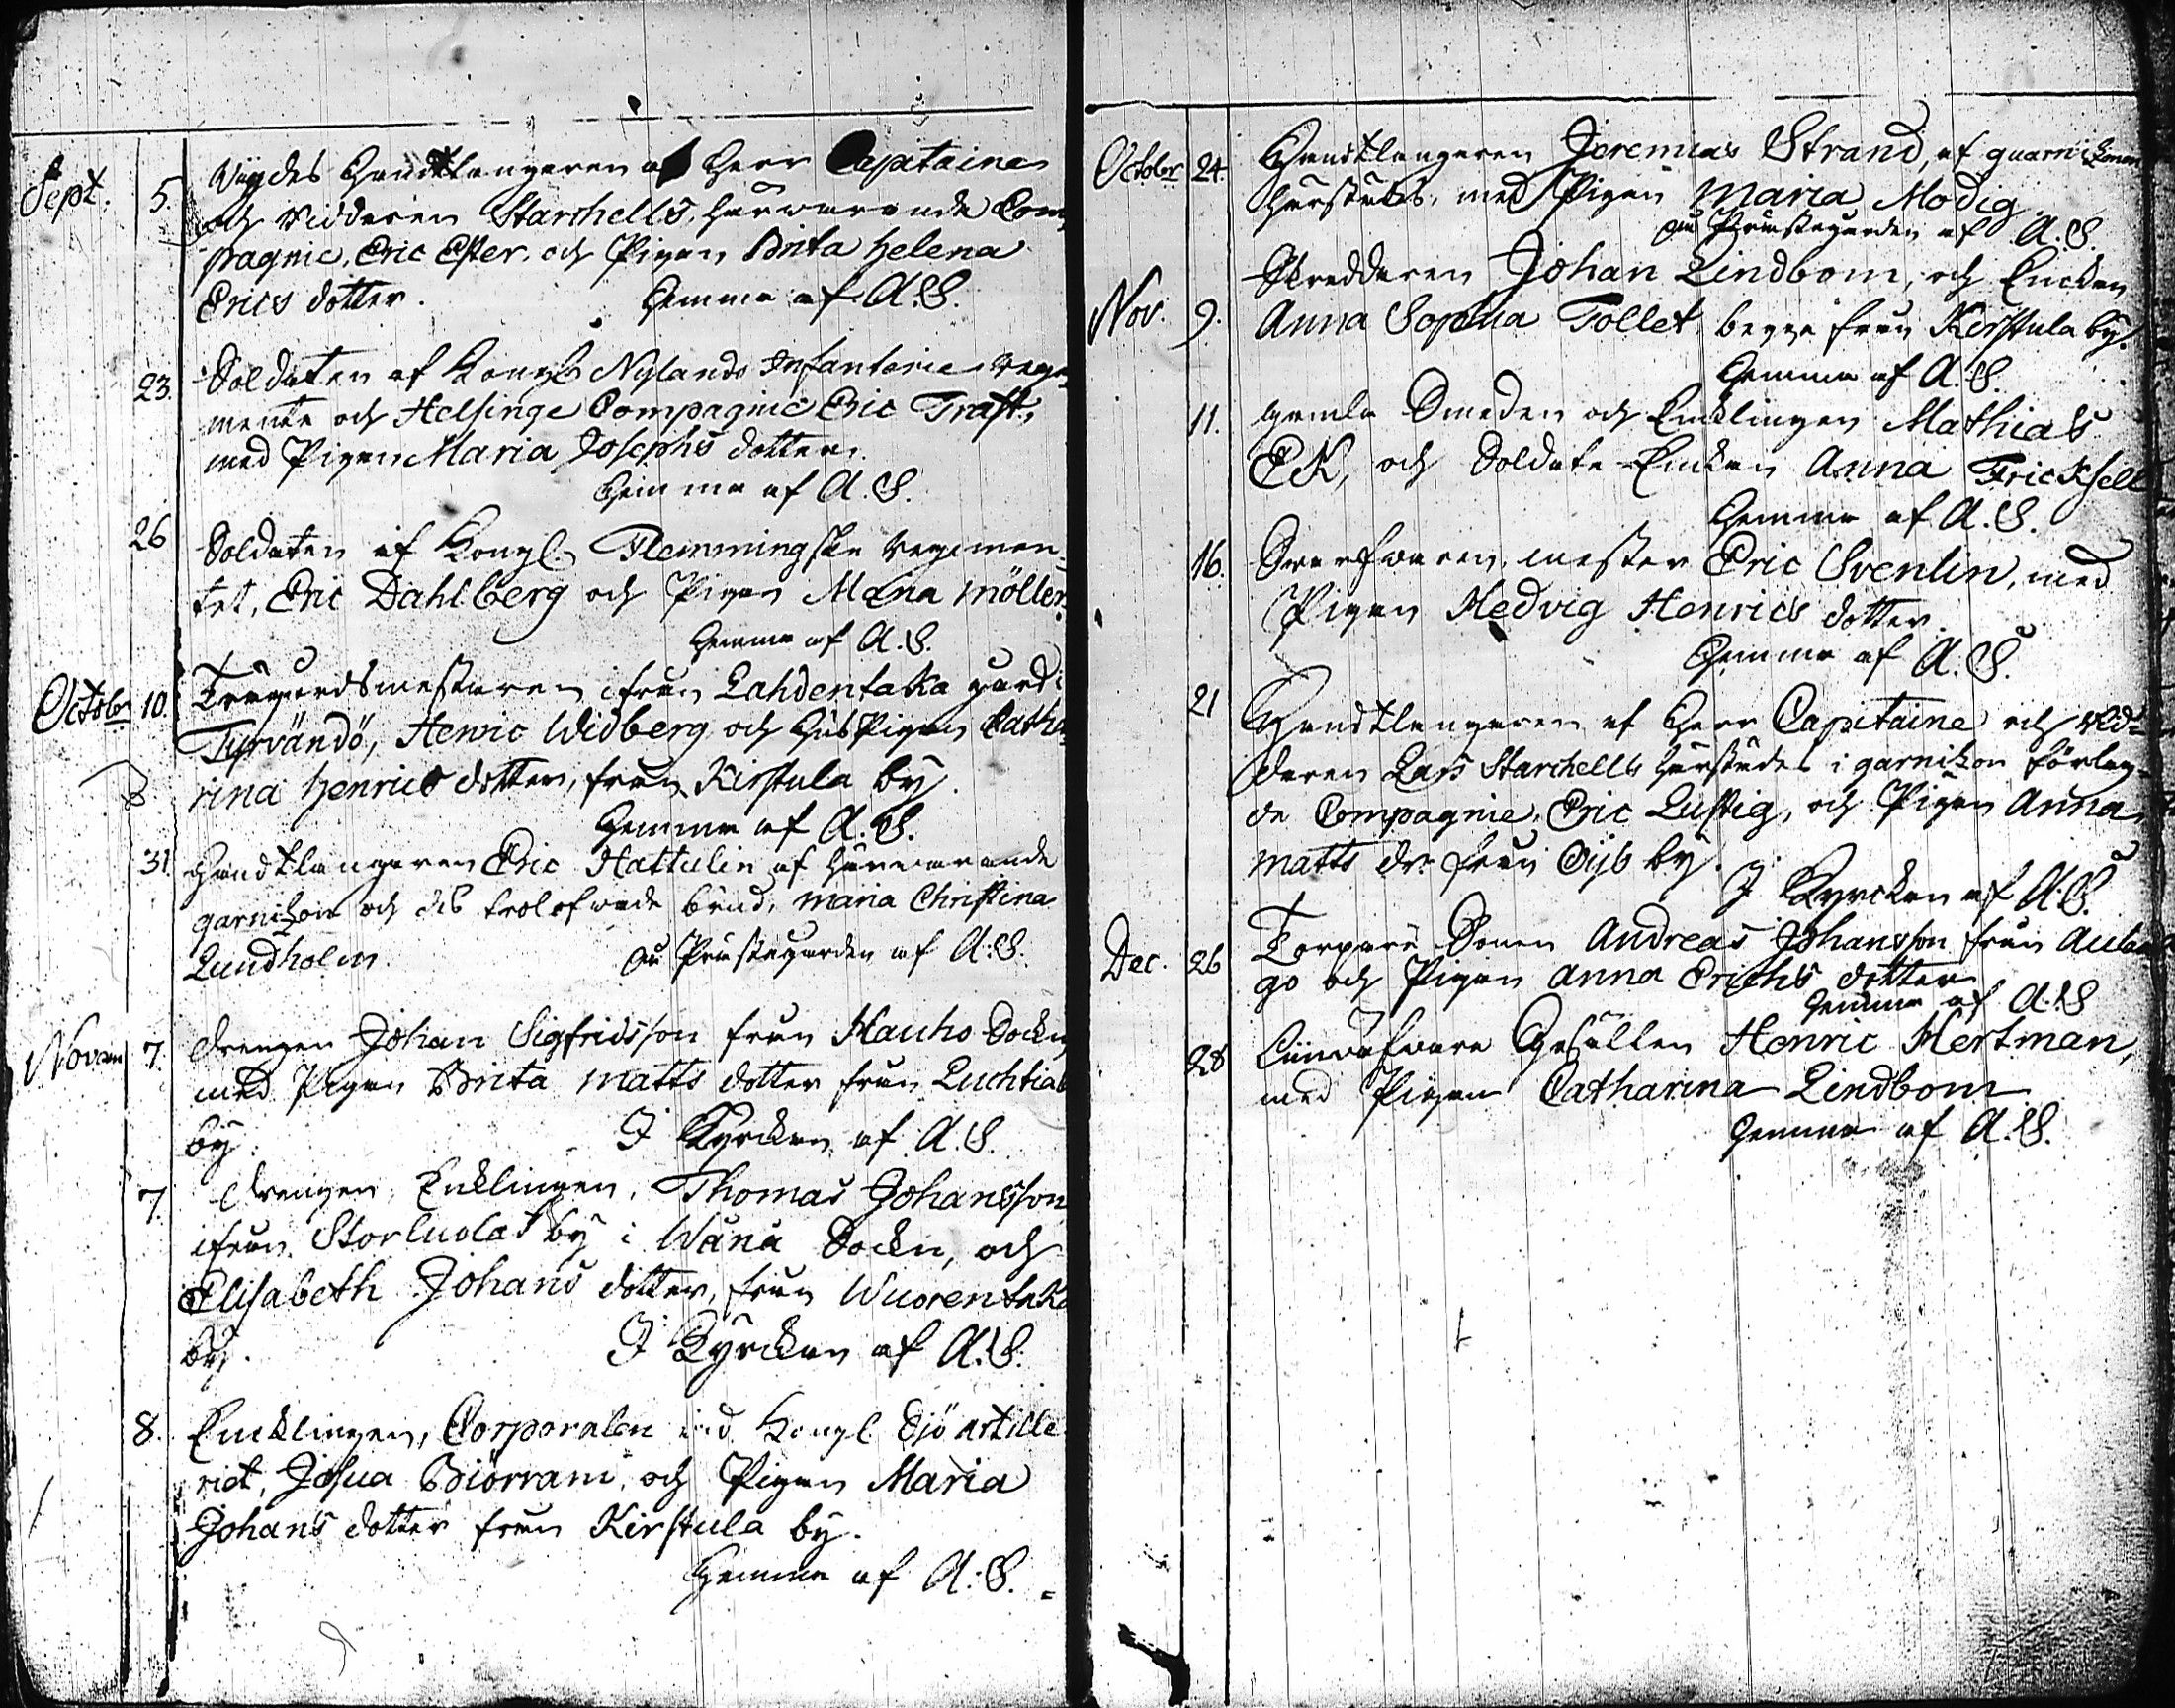 Sept. 5. Wigdes Handtlangaren af Herr Capitaine
och Ridderen Starchells, härwarande Com
pagnie, Eric Ester, och Pigan Brita Helena
Erics dotter. Hemma af A.S.
23. Soldaten af Kongl. Nylands Infanterie rege
mente och Helsinge Compagnie Eric Traft,
med Pigan Maria Josephs dotter.
Hemma af A.S.
26 Soldaten af Kongl. Flemmingske regimen
tet, Eric Dahlberg och Pigan Mæna Möller
Hemma af A.S.
October 10. Trägårdsmästaren ifrån Lahdentaka gård i
Tyrvändö, Henric Widberg och Hus Pigan Catha
rina Henrics dotter, från Kirstula by.
Hemma af A.S.
31. Handtlangaren Eric Hattulin af härwarande
garnizon och des trolofwade brud, Maria Christina
Lundholm. På Prästegården af A.S.
Novem 7. drengen Johan Sigfridsson från Hauho Sockn,
med Pigan Brita Matts dotter från Luchtials
by. I Kyrckan af A.S.
7. drengen, Encklingen, Thomas Johansson
ifrån Storluolas by i Wånå Sockn, och
Elisabeth Johans dotter, från Wuorentaka
by. I Kyrckan af A.S.
8. Encklingen, Corporalen wid Kongl. Siö Artille
riet, Josua Biörram, och Pigan Maria
Johans dotter från Kirstula by.
Hemma af A.S.
October 24. Handtlangaren Jeremias Strand, af guarnizonen
härstädes, med Pigan Maria Modig.
På Prästegården af A.S.
Skreddaren Johan Lindbom, och Enckan
Nov. 9. Anna Sophia Tollet, begge från Kirstula by.
Hemma af A.S.
11. gamla Smeden och Encklingen Mathias
EK, och Soldate Enckan Anna Fricksell
Hemma af A.S.
16. Swarfwaren, mester Eric Svenlin, med
Pigan Hedvig Henrics dotter.
Hemma af A.S.
21 Handtlangaren af Herr Capitaine och Rid-
daren Lars Starchells härstädes i garnizon förlag-
de Compagnie, Eric Lustig, och Pigan Anna
Matts dr. från Öijb by.
I Kyrckan af A.S.
Dec. 26 Torpare Sonen Andreas Johansson från
go och Pigan Anna Erichs dotter
Hemma af A.S.
28 Linwäfware Gesällen Henric Hertman,
med Pigan Catharina Lindbom
Hemma af A.S.